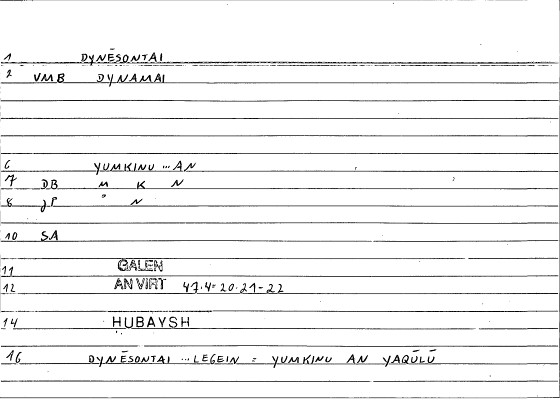 1 DYNĒSONTAI
2 VMB DYNAMAI
6 YUMKINU ... AN
7 DB M K N
8 JP ° N
10 SA
11 GALEN
12 AN VIRT 47.4 = 20.21-22
14 HUBAYSH
16 DYNĒSONTAI ... LEGEIN = YUMKINU AN YAQŪLŪ